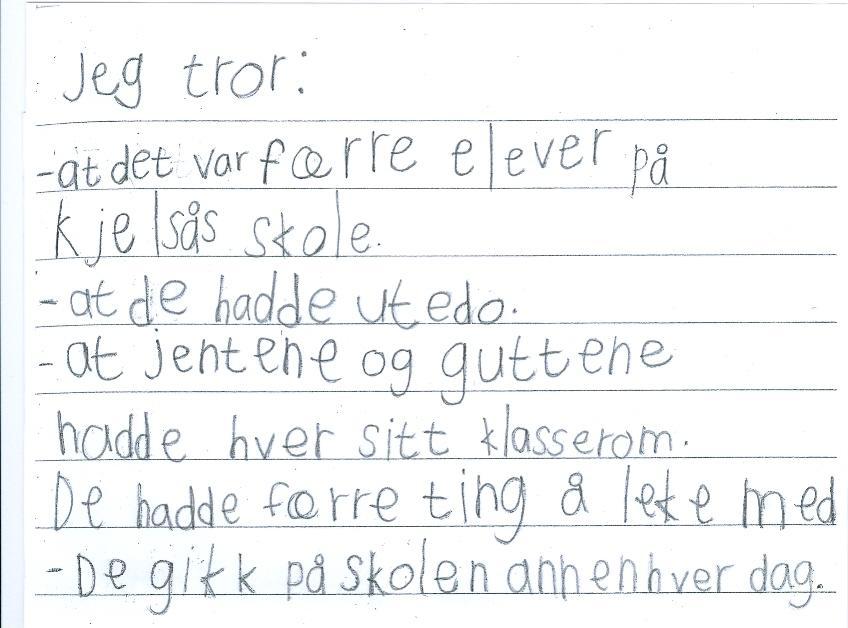 Jeg tror:
-at det var færre elever på
kjelsås skole.
-at de hadde utedo.
-at jentene og guttene
hadde hver sitt klasserom.
De hadde færre ting å leke med
-De gikk på skolen annenhver dag.